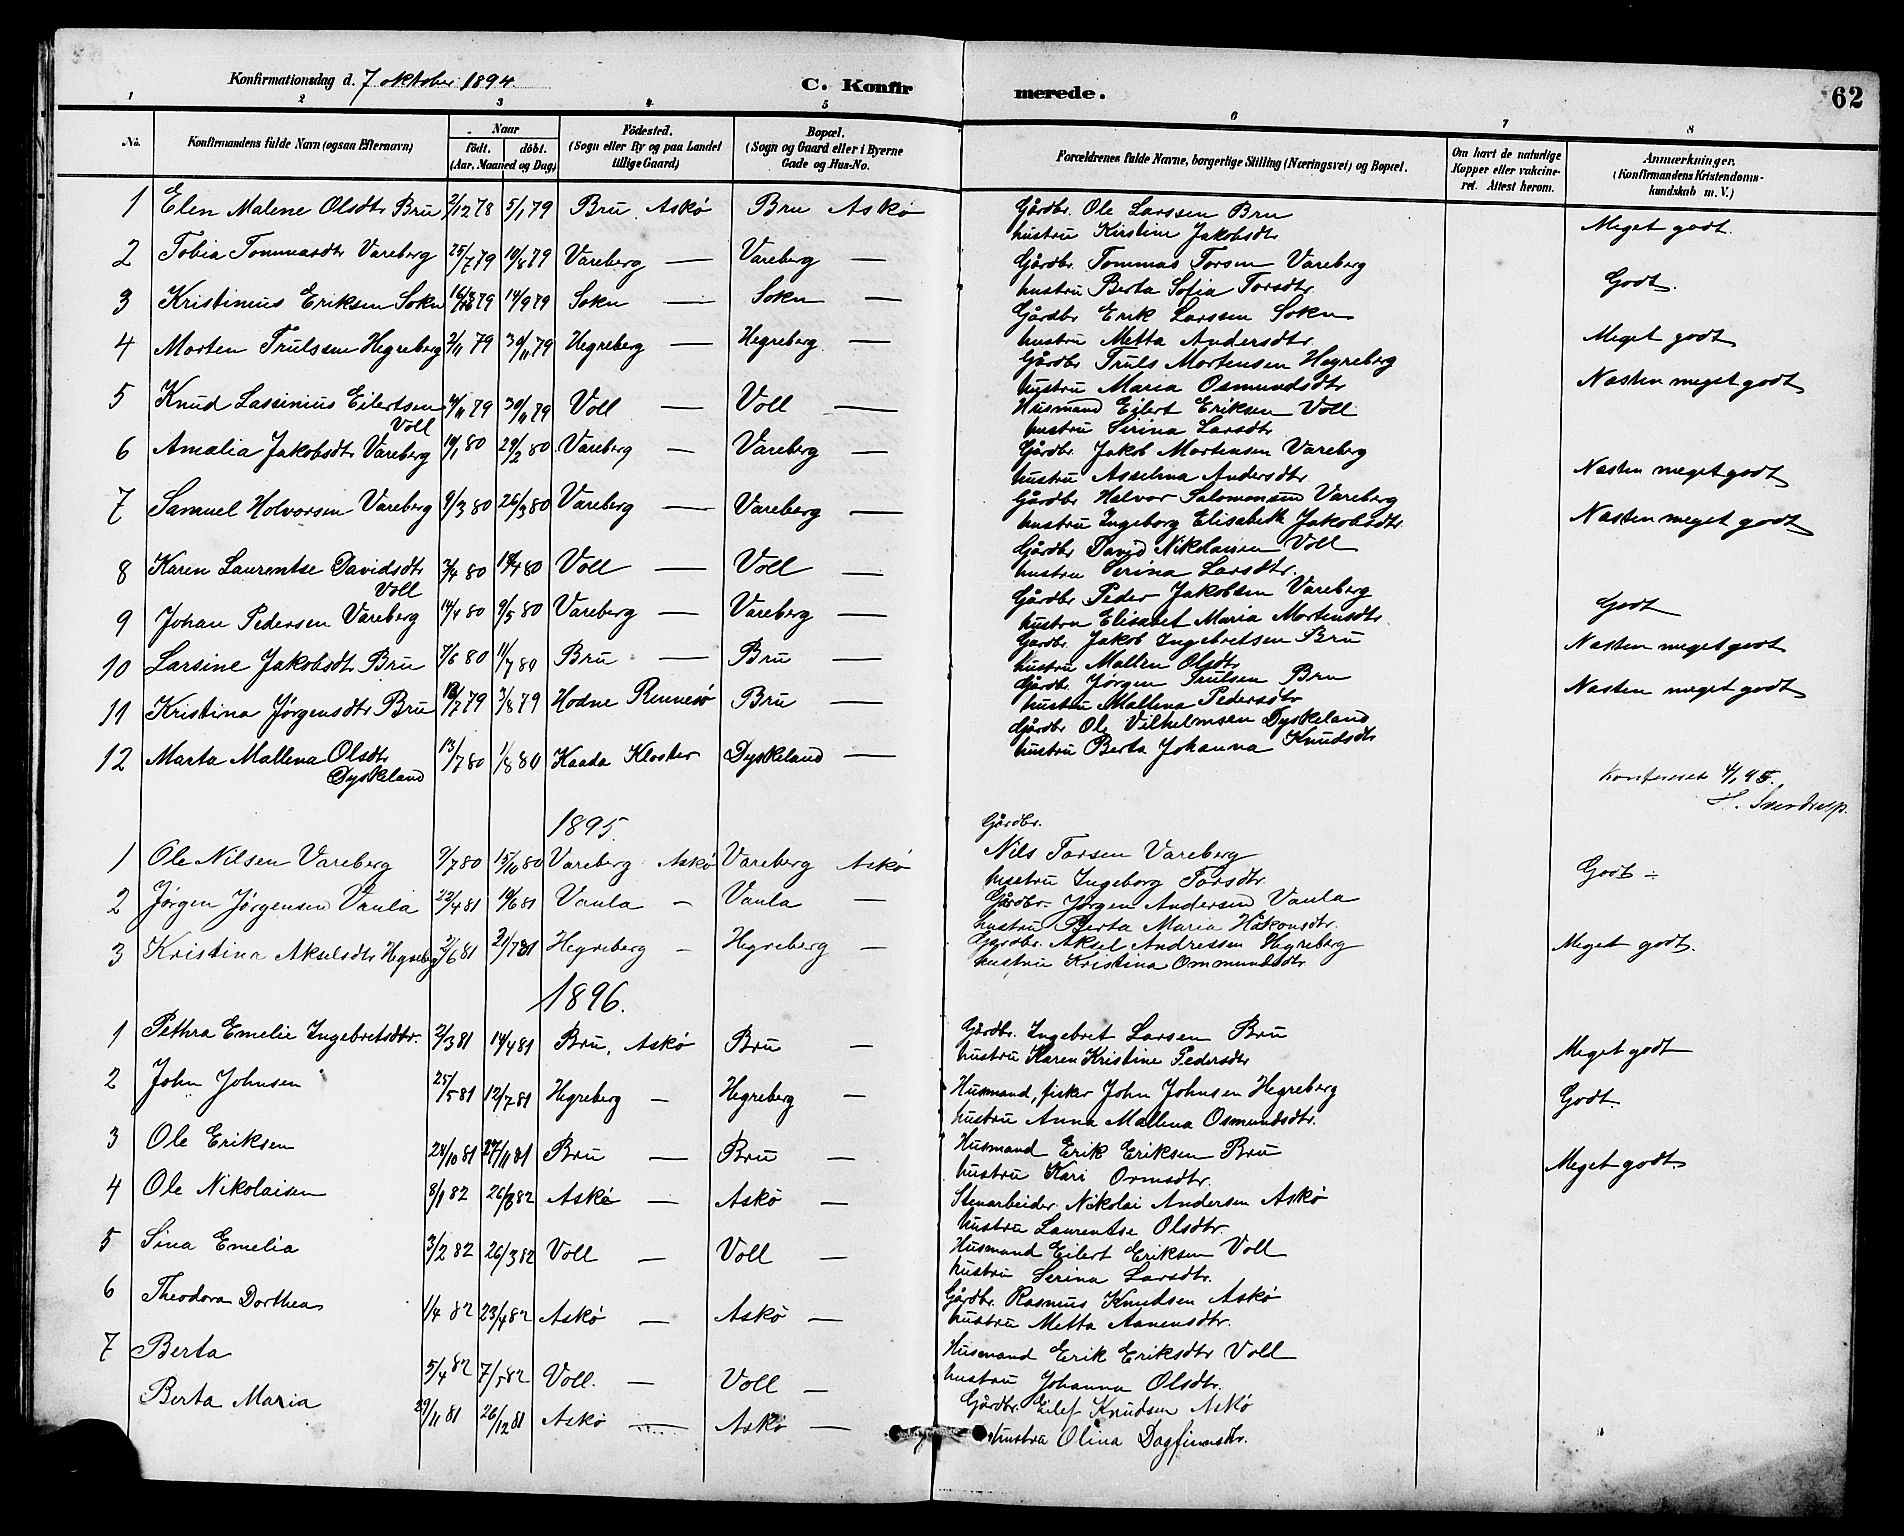 Konfirmationsdag d. 7 oktober 1894.
C. Konfirmerede.
62
1 2 3 4 5 6 7 8
No.
Konfirmandens fulde Navn (ogsaa Efternavn)
Naar
født. døbt.
(Aar, Maaned og Dag)
Fødested.
(Sogn eller By og paa Landet
tillige Gaard)
Bopæl.
(Sogn og Gaard eller i Byerne
Gade og Hus-No.
Forældrenes fulde Navne, borgerlige Stilling (Næringsvei) og Bopæl.
Om havt de naturlige
Kopper eller vakcine-
ret. Attest herom.
Anmærkninger.
(Konfirmandens Kristendoms-
kundskab m. V.)
1 Elen Malene Olsdtr Bru 2/12 78 5/1 79 Bru, Askö Bru Askö Gårdbr. Ole Larssen Bru
hustru Kirstine Jakobsdtr
Meget godt.
2 Tobia Tommasdtr Vareberg 25/7 79 10/8 79 Vareberg — Vareberg — Gårdbr. Tommas Torsen Vareberg
hustru Berta Sofia Torsdtr.
Godt.
3 Kristinius Eriksen Sokn 14/9 79 Sokn — Sokn — Gårdbr. Erik Larssen Sokn
hustru Metta Andersdtr
Meget godt
4 Morten Trulssen Hegreberg 2/11 79 30/11 79 Hegreberg — Hegreberg — Gårdbr. Truls Mortensen Hegreberg
hustru Maria Osmundsdtr
Næsten meget godt
5 Knud Lassinius Eilertsen
Voll
11 79 30/11 79 Voll — Voll — Husmand Eilert Eriksen Voll
hustru Serina Larsdtr
6 Amalia Jakobsdtr Vareberg 19/1 80 29/2 80 Vareberg — Vareberg — Gårdbr. Jakob Mortensen Vareberg
hustru Asselina Andersdtr
Næsten meget godt
7 Samuel Holvorsen Vareberg 9/3 80 26/3 80 Vareberg — Vareberg — Gårdbr Halvor Salomonsen Vareberg
hustru Ingeborg Elisabeth Jakobsdtr.
Næsten meget godt
8 Karen Laurentse Davidsdtr
Voll
3/4 80 18/4 80 Voll — Voll — Gårdbr David Nikolaisen Voll
hustru Serina Larsdtr.
9 Johan Pedersen Vareberg 14/4 80 9/5 80 Vareberg — Vareberg — Gårdbr Peder Jakobsen Vareberg
hustru Elisabet Maria Mortensdtr.
Godt
10 Larsine Jakobsdtr Bru 7/6 80 11/7 80 Bru — Bru — Gårdbr. Jakob Ingebretsen Bru
hustru Mallen Olsdtr
Næsten meget godt
11 Kristina Jørgensdtr Bru 3/8 79 Hodne Rennesö Bru — Gårdbr. Jørgen Trulsen Bru
hustru Mallena Pedersdtr
Næsten meget godt
12 Marta Mallena Olsdtr
Dyskeland
13/7 80 1/8 80 Kaada Kloster Dyskeland — Gårdbr. Ole Vilhelmsen Dyskeland
hustru Berta Johanna Knudsdtr
Konfereret 4/1 95.
Sverdrup.
1895.
Gårdbr.
1 Ole Nilsen Vareberg 9/7 80 15/10 80 Vareberg Askö Vareberg Askö Nils Torsen Vareberg
hustru Ingeborg Torsdtr.
Godt -
2 Jørgen Jørgensen Vaula 22/4 81 19/6 81 Vaula — Vaula — Gårdbr. Jørgen Andersen Vaula
hustru Berta Maria Håkonsdtr.
3 Kristine Akselsdtr Hegreberg 2/6 81 21/7 81 Hegreberg — Hegreberg — Gårdbr. Aksel Andressen Hegreberg
hustru Kristina Ommundsdtr
Meget godt.
1896.
1 Pethra Emelie Ingebretsdtr. 2/3 81 14/4 81 Bru, Askö Bru — Gårdbr. Ingebret Larsen Bru
hustru Karen Kristine Pedersdtr
Meget godt
2 John Johnsen 25/5 81 12/7 81 Hegreberg — Hegreberg — Husmand, fisker John Johnsen Hegreberg
hustru Anna Mallena Osmundsdtr.
Godt.
3 Ole Eriksen 24/10 81 27/11 81 Bru — Bru — Husmand Erik Eriksen Bru
hustru Kari Ormsdtr.
Meget godt
4 Ole Nikolaisen 8/1 82 26/3 82 Askö — Askö — Stenarbeider Nikolai Andersen Askö
hustru Laurentse Olsdtr.
5 Sina Emelia 3/2 82 26/3 82 Voll — Voll — Husmand Eilert Eriksen Voll
hustru Serina Larsdtr.
6 Theodora Dorthea 1/4 82 23/4 82 Askö — Askö — Gårdbr. Rasmus Knudsen Askö
hustru Metta Aanensdtr.
7 Berta 5/4 82 7/5 82 Voll. — Voll — Husmand Erik Eriksdtr Voll
hustru Johanna Olsdtr.
Berta Maria 29/11 81 26/12 81 Askö — Askö — Gårdbr. Eilef Knudsen Askö
hustru Olina Dagfinnsdtr.